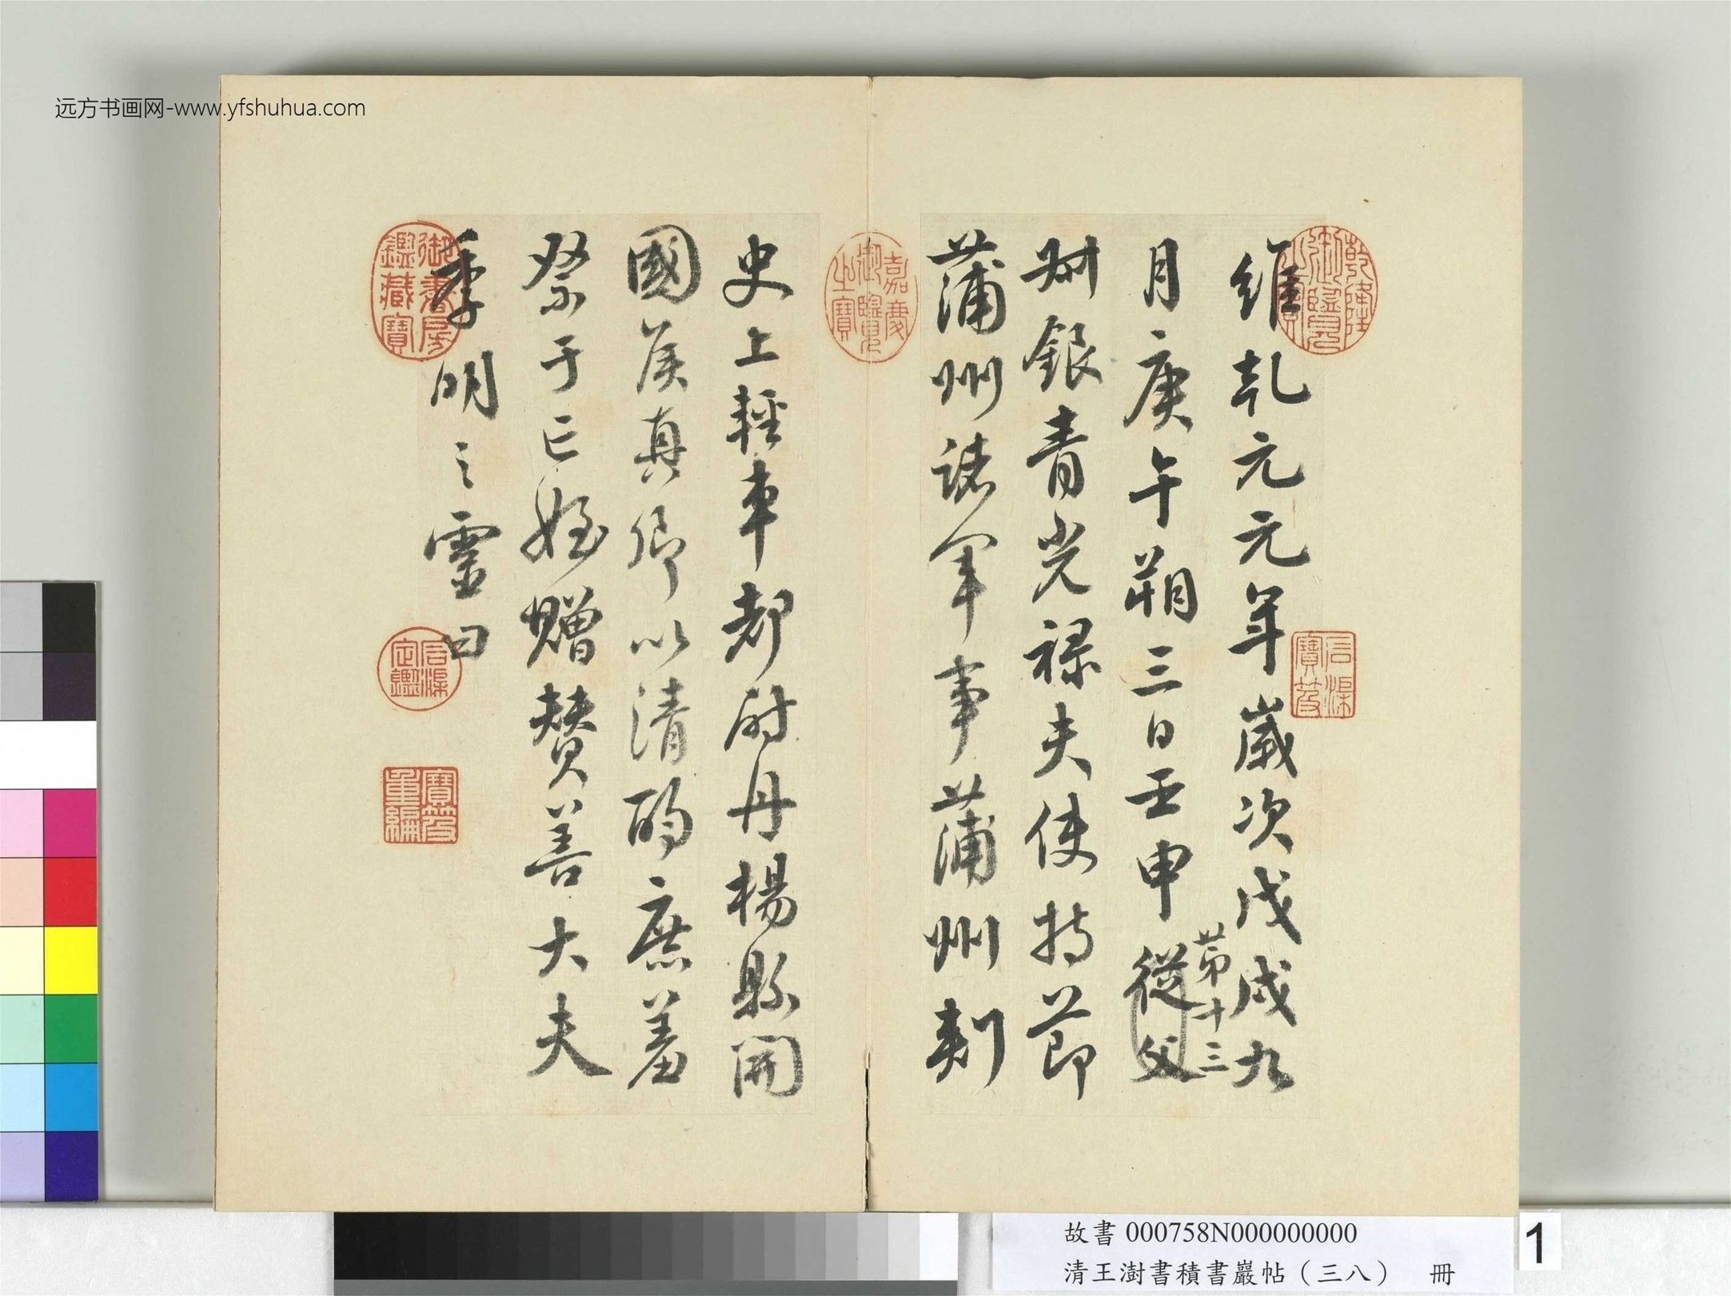 远方书画网-www.yfshuhua.com
維乹元元年歲次戊戌九
月庚午朔三日壬申從父
苐十三
州銀青光祿夫使持節
蒲州諸軍事蒲州刺
史上輕車都尉丹楊縣開
國侯真卿以清酌庶羞
祭于亡姪贈贊善大夫
季明之靈曰
乾隆御覽之寶
石渠寶笈
嘉慶御覽之寶
御書房鑑藏寶
石渠定鑑
寶笈重編
故書 000758N000000000
清王澍書積書巖帖（三八） 冊
1